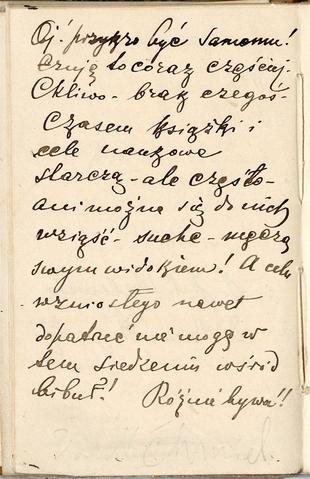 Oj! przykro być samemu!
Czuję to coraz częściej.
Ckliwo - brak czegoś -
Czasem książki i
cele naukowe
starczą - ale często -
ani można się do nich
wziąść - suche - męczą
swym widokiem! A celu
wzniosłego nawet
dopatrzeć nie mogę w
tem siedzeniu wśród
bibuł! Różnie bywa!!